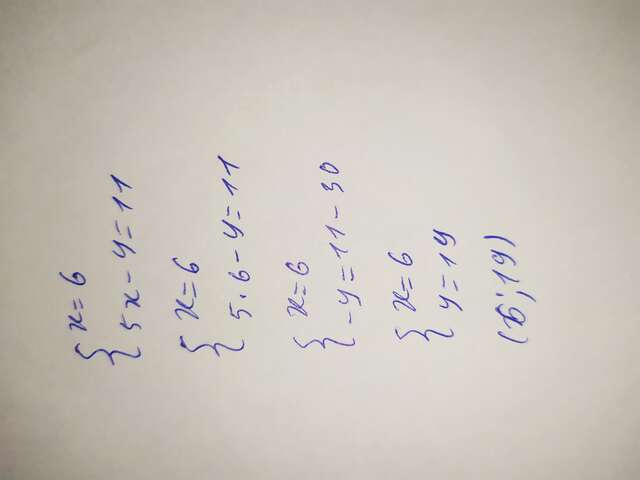 { x = 6
5x - y = 11
{ x = 6
5 · 6 - y = 11
{ x = 6
-y = 11 - 30
{ x = 6
y = 19
(6; 19)